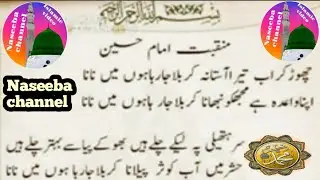 بسم اللہ الرحمن الرحیم
منقبت امام حسین
چھوڑ کر اب تیرا آستانہ کربلا جا رہا ہوں میں نانا
اپنا وعدہ ہے مجھکو نبھانا کربلا جا رہا ہوں میں نانا
سر ہتھیلی پہ لیکے چلے ہیں بھوکے پیاسے بہتر چلے ہیں
حشر میں آب کوثر پیلانا کربلا جا رہا ہوں میں نانا
Naseeba
channel
Naseeba channel
Islamic video
Naseeba channel
Islamic video
محمد